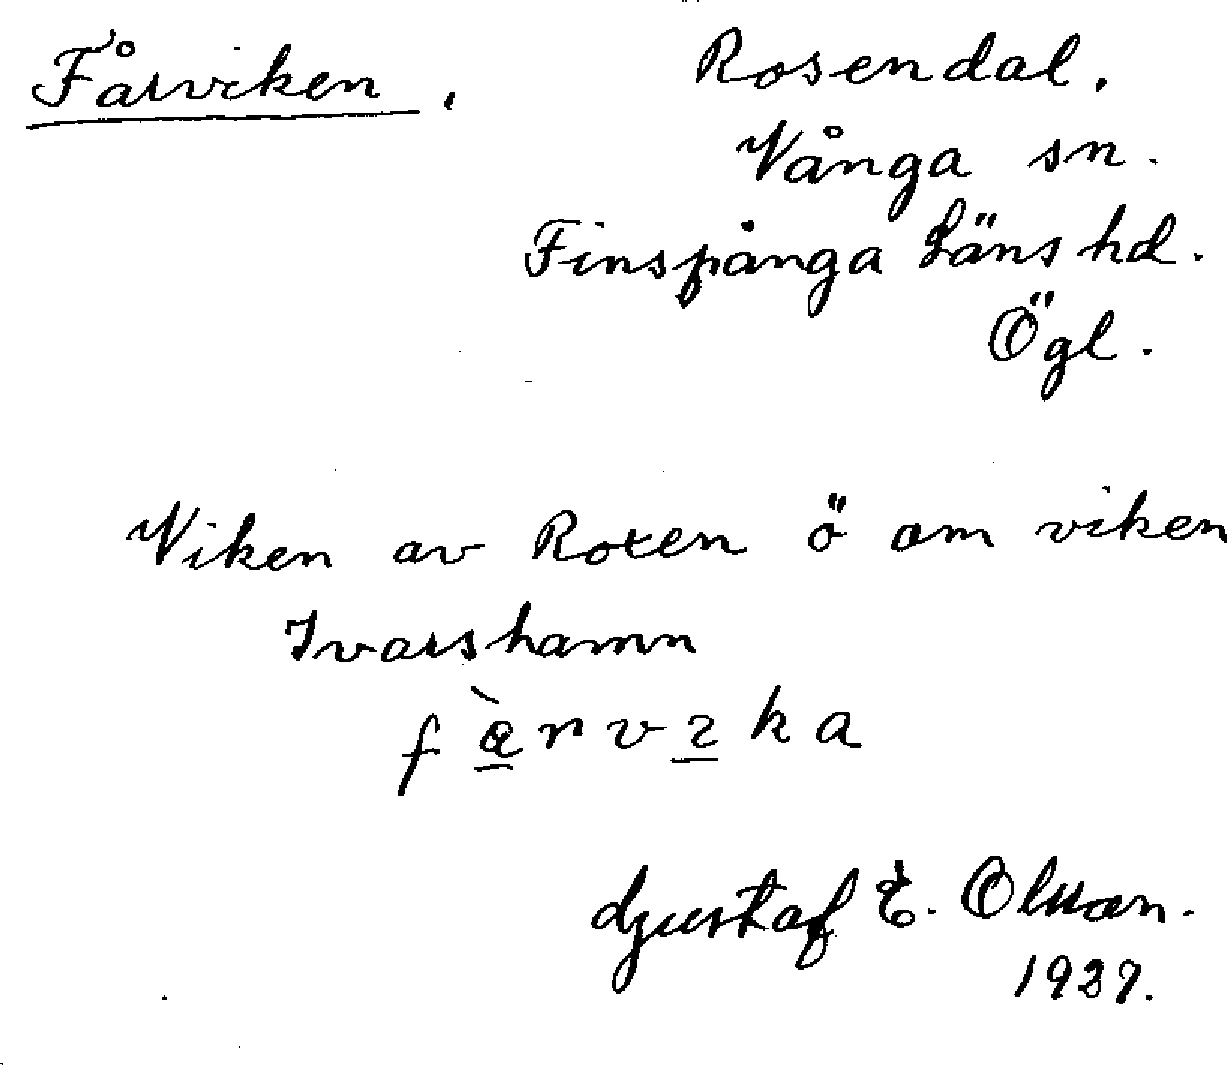 Fårviken.
Rosendal.
Vånga sn.
Finspånga Läns hd.
Ögl.
Viken av Roxen ö om viken
Ivarshamn
Gustaf E. Olsson.